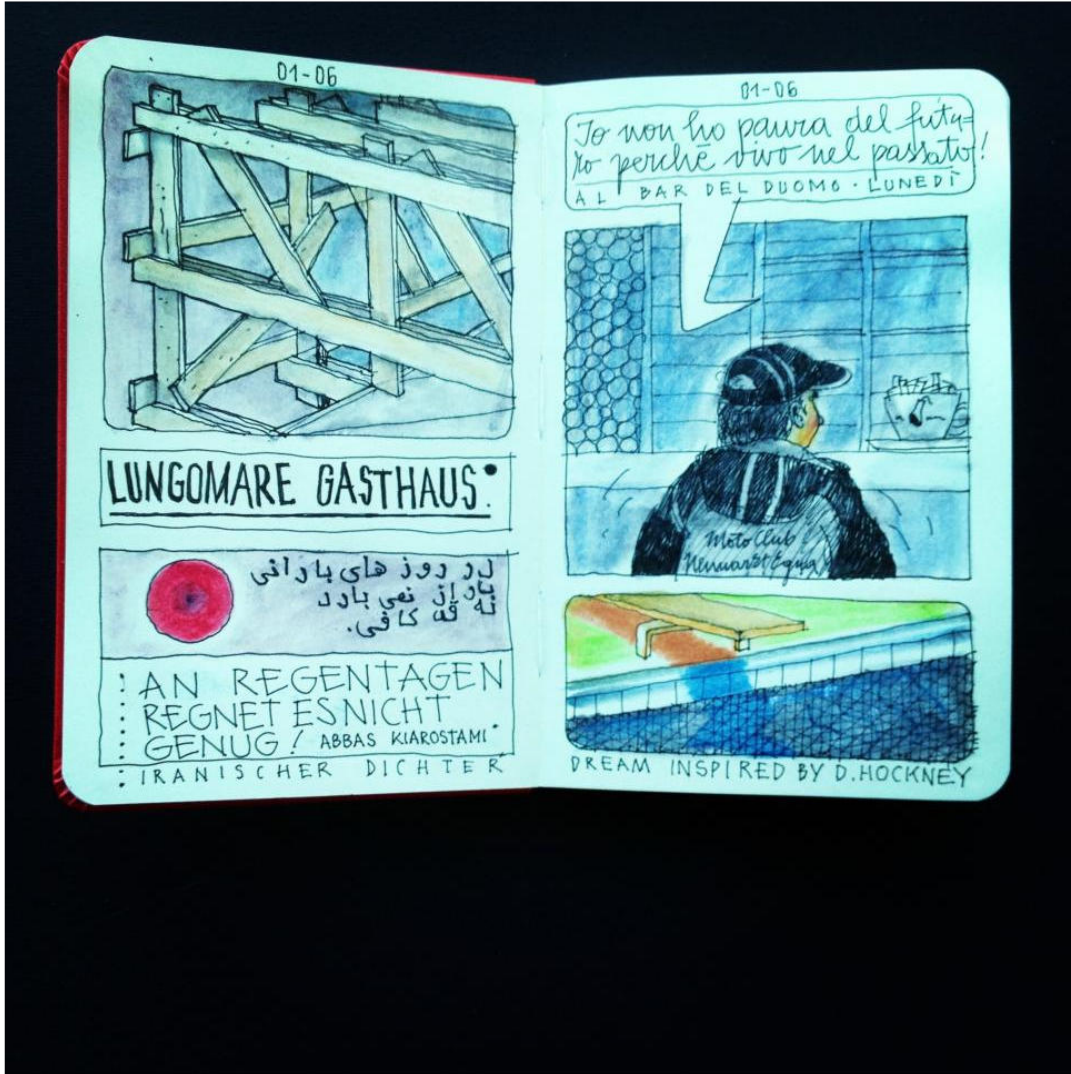 01-06
LUNGOMARE GASTHAUS.
در روز های بارانی
باران نمی بارد
نه که کافی.
AN REGENTAGEN
REGNET ES NICHT
GENUG! ABBAS KIAROSTAMI
IRANISCHER DICHTER
01-06
Io non ho paura del futu=
ro perchē vivo nel passato!
AL BAR DEL DUOMO · LUNEDÌ
Moto Club
DREAM INSPIRED BY D. HOCKNEY